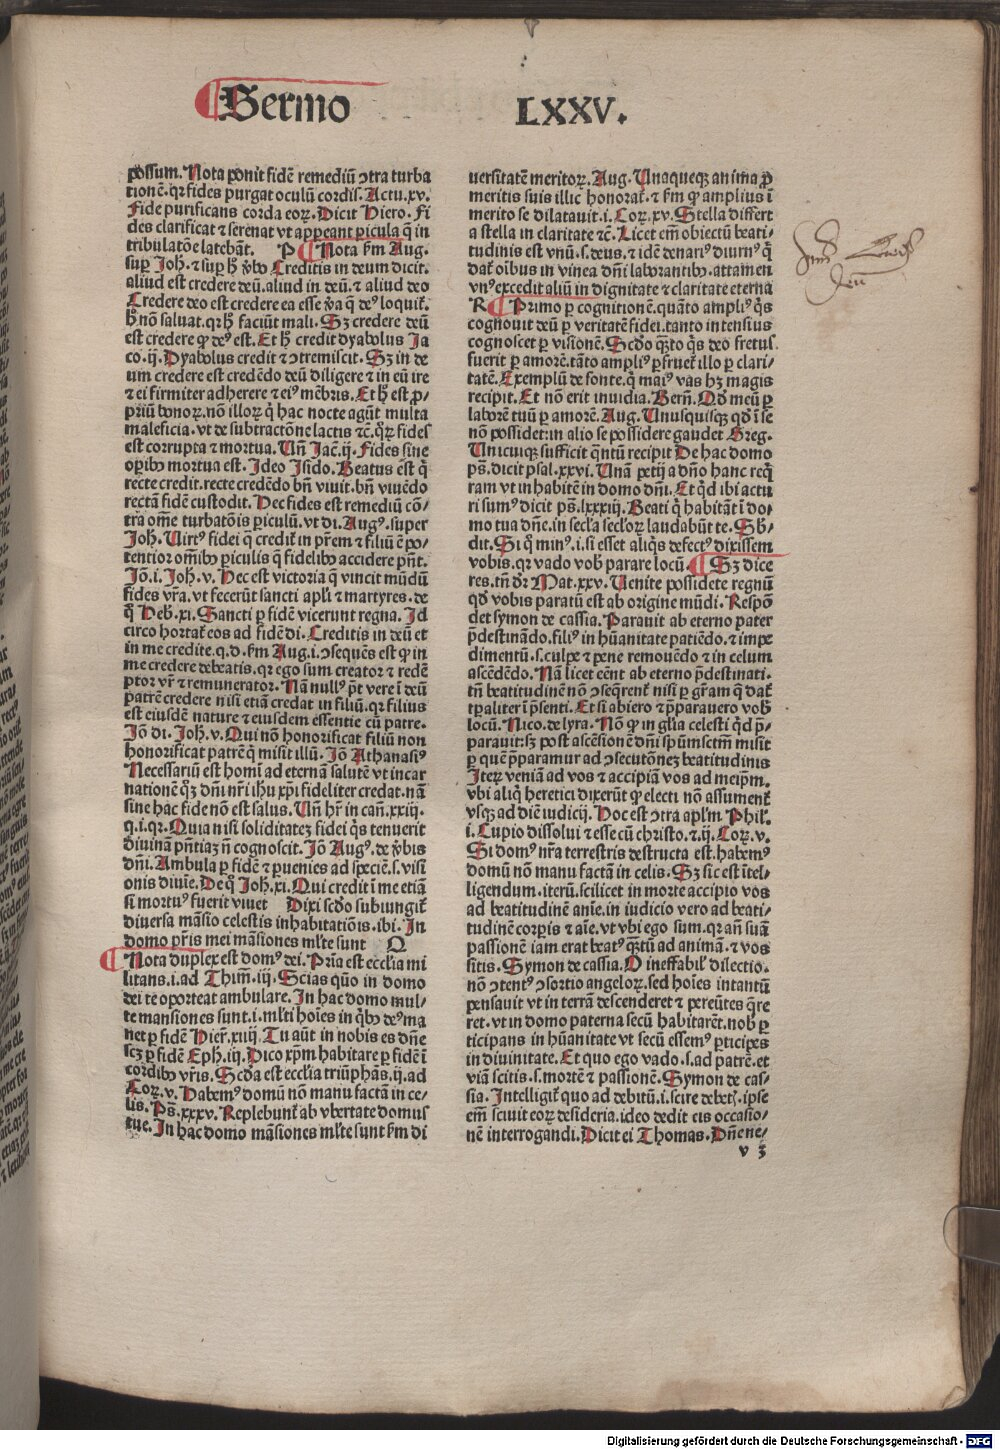 Sermo LXXV.
possum. Nota ponit fidē remediū ɔtra turba
tionē. qr fides purgat oculū cordis. Actu. xv.
Fide purificans corda eoꝝ. Dicit Hiero. Fi
des clarificat ⁊ serenat vt appeant picula q̄ in
tribulatōe latebāt. P Nota ẜm Aug.
sup Joh. ⁊ sup hͦ ꝟbo Creditis in deum dicit.
aliud est credere deū. aliud in deū. ⁊ aliud deo
Credere deo est credere ea esse ꝟa q̄ deꝰ loquit᷑.
hͦ nō saluat. qr hͦ faciūt mali. Sꝫ credere deū
est credere ꝙ deꝰ est. Et hͦ credit dyabolus Ja
co. ij. Dyabolus credit ⁊ ɔtremiscit. Sꝫ in de
um credere est credēdo deū diligere ⁊ in eū ire
⁊ ei firmiter adherere ⁊ eiꝰ mēbris. Et hͦ est ꝓ-
priū bonoꝝ. nō illoꝝ q̄ hac nocte agūt multa
maleficia. vt de subtractōne lactis ⁊c̄. qꝝ fides
est corrupta ⁊ mortua. Vn̄ Jac̄. ij. Fides sine
oꝑibꝰ mortua est. Ideo Isido. Beatus est q̄
recte credit. recte credēdo bn̄ viuit. bn̄ viuēdo
rectā fidē custodit. Hec fides est remediū cō-
tra om̄e turbatōis ꝑiculū. vt di. Augꝰ. super
Joh. Virtꝰ fidei q̄ credit᷑ in pr̄em ⁊ filiū ē po-
tentior om̄ibꝰ ꝑiculis q̄ fidelibꝰ accidere pn̄t.
Jō. i. Joh. v. Hec est victoria q̄ vincit mūdū
fides vr̄a. vt fecerūt sancti apl̄i ⁊ martyres. de
q̄ Heb. xi. Sancti ꝑ fidē vicerunt regna. Id
circo hortat᷑ eos ad fidē di. Creditis in deū et
in me credite. q. d. ẜm Aug. i. ɔsequēs est ꝙ in
me credere debeatis. qr ego sum creator ⁊ redē
ptor vr̄ ⁊ remunerator. Nā nullꝰ pt̄ vere ī deū
patrē credere nisi etiā credat in filiū. qr filius
est eiusdē nature ⁊ eiusdem essentie cū patre.
Jō di. Joh. v. Qui nō honorificat filiū non
honorificat patrē q̄ misit illū. Jō Athanasiꝰ
Necessariū est homī ad eternā salutē vt incar
nationē qꝫ dn̄i nr̄i ihu xp̄i fideliter credat. nā
sine hac fide nō est salus. Vn̄ hr̄ in cān. xxiij.
q. i. qr. Quia nisi soliditatē fidei q̄s tenuerit
diuinā pn̄tiaꝫ n̄ cognoscit. Jō Augꝰ. de ꝟbis
dn̄i. Ambula ꝑ fidē ⁊ ꝑuenies ad speciē. s. visi
onis diuīe. De q̄ Joh. xi. Qui credit ī me etiā
si mortuꝰ fuerit viuet Dixi scd̄o subiungit᷑
diuersa māsio celestis inhabitatiōis. ibi. In
domo pr̄is mei māsiones ml̄te sunt Q
Nota duplex est domꝰ dei. Pr̄ia est eccl̄ia mi
litans. i. ad Thim̄. iij. Scias quō in domo
dei te oporteat ambulare. In hac domo mul-
te mansiones sunt. i. ml̄ti hoīes in qͥbꝰ deꝰ ma
net ꝑ fidē Hier̄. xiiij. Tu aūt in nobis es dn̄e
scꝫ ꝑ fidē Eph. iij. Dico xp̄m habitare ꝑ fidē ī
cordibꝰ vr̄is. Scd̄a est eccl̄ia triūphās. ij. ad
Coꝝ. v. Habemꝰ domū nō manu factā in ce-
lis. Ps̄. xxxv. Replebunt᷑ ab vbertate domus
tue. In hac domo māsiones ml̄te sunt ẜm di
uersitatē meritoꝝ. Aug. Vnaqueqꝫ anima ꝓ
meritis suis illic honorat᷑. ⁊ ẜm ꝙ amplius ī
merito se dilatauit. i. Coꝝ. xv. Stella differt
a stella in claritate ⁊c̄. Licet em̄ obiectū beati-
tudinis est vnū. s. deus. ⁊ idē denariꝰ diurnꝰ q̄
dat᷑ oībus in vinea dn̄i laborantibꝰ. attamen
vnꝰ excedit aliū in dignitate ⁊ claritate eterna
R Primo ꝑ cognitionē. quāto ampliꝰ q̄s
cognouit deū ꝑ veritatē fidei. tanto intensius
cognoscet ꝑ visionē. Scd̄o q̄to q̄s deo fretus
fuerit ꝑ amorē. tāto ampliꝰ ꝑfruet᷑ illo ꝑ clari-
tatē. Exemplū de fonte. q̄ maiꝰ vas hꝫ magis
recipit. Et nō erit inuidia. Bern̄. Qd̄ meū ꝑ
laborē tuū ꝑ amorē. Aug. Vnusquisqꝫ qd̄ ī se
nō possidet: in alio se possidere gaudet Greg.
Vnicuiqꝫ sufficit q̄ntū recipit De hac domo
ps̄. dicit psal. xxvi. Vnā petij a dn̄o hanc req̄
ram vt inhabitē in domo dn̄i. Et qͥd ibi actu
ri sumꝰ dicit ps̄. lxxxiij. Beati q̄ habitāt ī do
mo tua dn̄e. in secl̄a secl̄oꝝ laudabūt te. Sb̄-
dit. Si q̄ minꝰ. i. si esset aliq̄s defectꝰ dixissem
vobis. qr vado vob̄ parare locū. Sꝫ dice
res. tn̄ dr̄ Mat. xxv. Venite possidete regnū
qd̄ vobis paratū est ab origine mūdi. Respō
det symon de cassia. Parauit ab eterno pater
p̄destinādo. filiꝰ in hūanitate patiēdo. ⁊ impe
dimentū. s. culpe ⁊ pene remouēdo ⁊ in celum
ascēdēdo. Nā licet eēnt ab eterno p̄destinati.
tn̄ beatitudinē nō ɔseq̄rent᷑ nisi ꝑ gr̄am q̄ dat᷑
tꝑaliter ī p̄senti. Et si abiero ⁊ p̄parauero vob̄
locū. Nico. de lyra. Nō ꝙ in gl̄ia celesti qͥd p̄-
parauit: sꝫ post ascēsionē dn̄i sp̄um sctm̄ misit
ꝑ quē p̄paramur ad ɔsecutōnez beatitudinis
Iteꝝ veniā ad vos ⁊ accipiā vos ad meip̄m.
vbi aliq̄ heretici dixerūt ꝙ electi nō assument᷑
vsqꝫ ad diē iudicij. Hoc est ɔtra apl̄m. Phil᷑.
i. Cupio dissolui ⁊ esse cū christo. ⁊ ij. Coꝝ. v.
Si domꝰ nr̄a terrestris destructa est. habemꝰ
domū nō manu factā in celis. Sꝫ sic est ītel-
ligendum. iterū. scilicet in morte accipio vos
ad beatitudinē anīe. in iudicio vero ad beati-
tudinē corꝑis ⁊ aīe. vt vbi ego sum. qr an̄ suā
passionē iam erat beatꝰ q̄ztū ad animā. ⁊ vos
sitis. Symon de cassia. O ineffabil᷑ dilectio.
nō ɔtentꝰ ɔsortio angeloꝝ. sed hoīes intantū
pensauit vt in terrā descenderet ⁊ pereūtes q̄re
ret. vt in domo paterna secū habitarēt. nob̄ ꝑ
ticipans in hūanitate vt secū essemꝰ ꝑticipes
in diuinitate. Et quo ego vado. s. ad patrē. et
viā scitis. s. mortē ⁊ passionē. Symon de cas-
sia. Intelligit᷑ quo ad debitū. i. scire debetꝭ. ipse
em̄ sciuit eoꝝ desideria. ideo dedit eis occasio-
nē interrogandi. Dicit ei Thomas. Dn̄e ne-
v 3
Digitalisierung gefördert durch die Deutsche Forschungsgemeinschaft - DFG